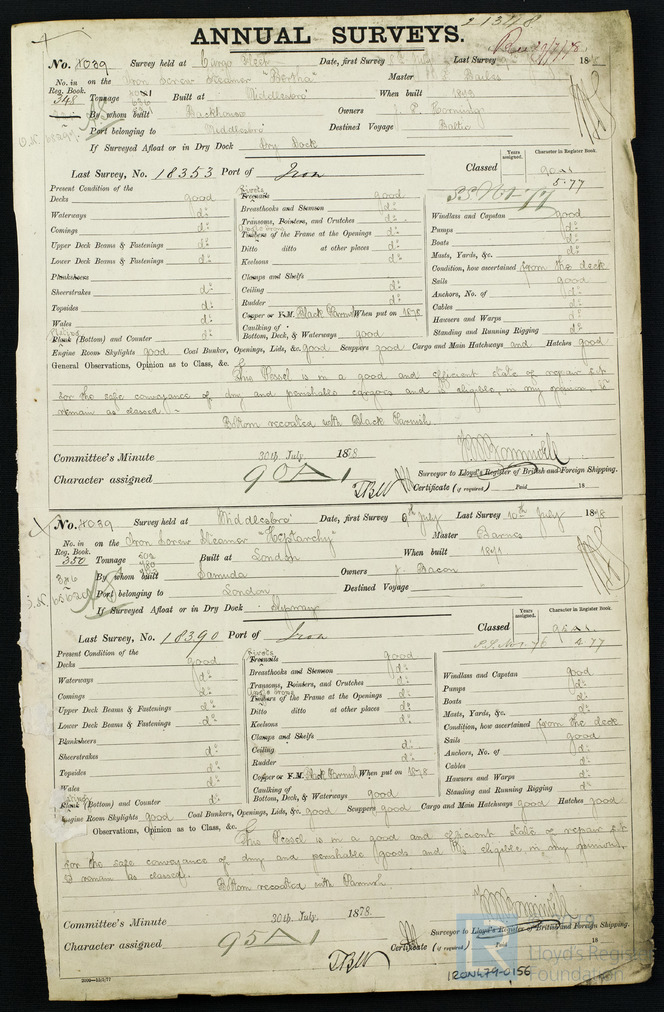 21348
ANNUAL SURVEYS.
No. 4039 Survey held at Cargo Fleet Date, first Survey Last Survey 187
Rec 29/7/78
No. in on the Iron Screw Steamer "Bertha" Master
Reg. Book.
348 Tonnage Built at Middlesbro' When built
By whom built Backhouse Owners
Port belonging to Middlesbro' Destined Voyage Baltic
If Surveyed Afloat or in Dry Dock Dry Dock
Years assigned. Character in Register Book.
Last Survey, No. 18353 Port of Iron Classed 90A1
5.77
Present Condition of the
Decks good
Waterways do
Comings do
Upper Deck Beams & Fastenings do
Lower Deck Beams & Fastenings do
Planksheers
Sheerstrakes do
Topsides do
Wales do
Plank (Bottom) and Counter do
Rivets
Treenails good
Breasthooks and Stemson do
Transoms, Pointers, and Crutches do
Angle Irons
Timbers of the Frame at the Openings do
Ditto ditto at other places do
Keelsons do
Clamps and Shelfs
Ceiling do
Rudder do
Copper or Y.M. Black Varnish When put on 1878
Caulking of
Bottom, Deck, & Waterways good
Windlass and Capstan good
Pumps do
Boats do
Masts, Yards, &c. do
Condition, how ascertained from the deck
Sails good
Anchors, No. of do
Cables do
Hawsers and Warps do
Standing and Running Rigging do
Engine Room Skylights good Coal Bunker, Openings, Lids, &c. good Scuppers good Cargo and Main Hatchways and Hatches good
General Observations, Opinion as to Class, &c.
This Vessel is in a good and efficient state of repair fit
for the safe conveyance of dry and perishable cargoes and is eligible, in my opinion, to
remain as classed.
Bottom recoated with Black Varnish.
Committee's Minute 30th July. 1878
Character assigned 90A1
TBW
Surveyor to Lloyd's Register of British and Foreign Shipping.
Certificate (if required) Paid 18
No. 4039 Survey held at Middlesbro' Date, first Survey 6th July Last Survey 10th July 1878
No. in on the Iron Screw Steamer "Heptarchy" Master Barnes
Reg. Book.
350 Tonnage Built at London When built 1871
By whom built Samuda Owners J. Bacon
Port belonging to London Destined Voyage
If Surveyed Afloat or in Dry Dock Slipway
Years assigned. Character in Register Book.
Last Survey, No. 18390 Port of Iron Classed 95A1
4.77
Present Condition of the
Decks good
Waterways do
Comings do
Upper Deck Beams & Fastenings do
Lower Deck Beams & Fastenings do
Planksheers
Sheerstrakes do
Topsides do
Wales do
Plank (Bottom) and Counter do
Rivets
Treenails good
Breasthooks and Stemson do
Transoms, Pointers, and Crutches do
Angle Irons
Timbers of the Frame at the Openings do
Ditto ditto at other places do
Keelsons do
Clamps and Shelfs
Ceiling do
Rudder do
Copper or Y.M. Black Varnish When put on 1878
Caulking of
Bottom, Deck, & Waterways good
Windlass and Capstan good
Pumps do
Boats do
Masts, Yards, &c. do
Condition, how ascertained from the deck
Sails good
Anchors, No. of do
Cables do
Hawsers and Warps do
Standing and Running Rigging do
Engine Room Skylights good Coal Bunkers, Openings, Lids, &c. good Scuppers good Cargo and Main Hatchways good Hatches good
Observations, Opinion as to Class, &c.
This Vessel is in a good and efficient state of repair fit
for the safe conveyance of dry and perishable goods and is eligible, in my opinion,
to remain as classed.
Bottom recoated with Varnish
Committee's Minute 30th July. 1878.
Character assigned 95A1
TBW
Surveyor to Lloyd's Register of British and Foreign Shipping.
Certificate (if required) Paid 18
IRON479-0156
Lloyd's Register
Foundation